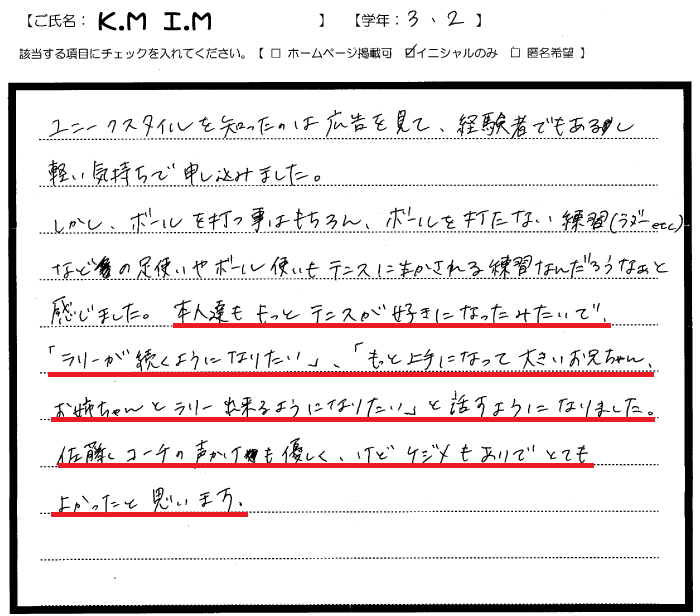 【ご氏名： K.M I.M 】 【学年：3、2】
該当する項目にチェックを入れてください。【 □ ホームページ掲載可 ☑イニシャルのみ □ 匿名希望 】
ユニークスタイルを知ったのは広告を見て、経験者でもあるし
軽い気持ちで申し込みました。
しかし、ボールを打つ事はもちろん、ボールを打たない練習(ラダーetc)
などの足使いやボール使いもテニスに生かされる練習なんだろうなぁと
感じました。本人達ももっとテニスが好きになったみたいで、
「ラリーが続くようになりたい」、「もっと上手になって大きいお兄ちゃん、
お姉ちゃんとラリー出来るようになりたい」と話すようになりました。
佐藤コーチの声かけも優しく、けどケジメもありでとても
よかったと思います。